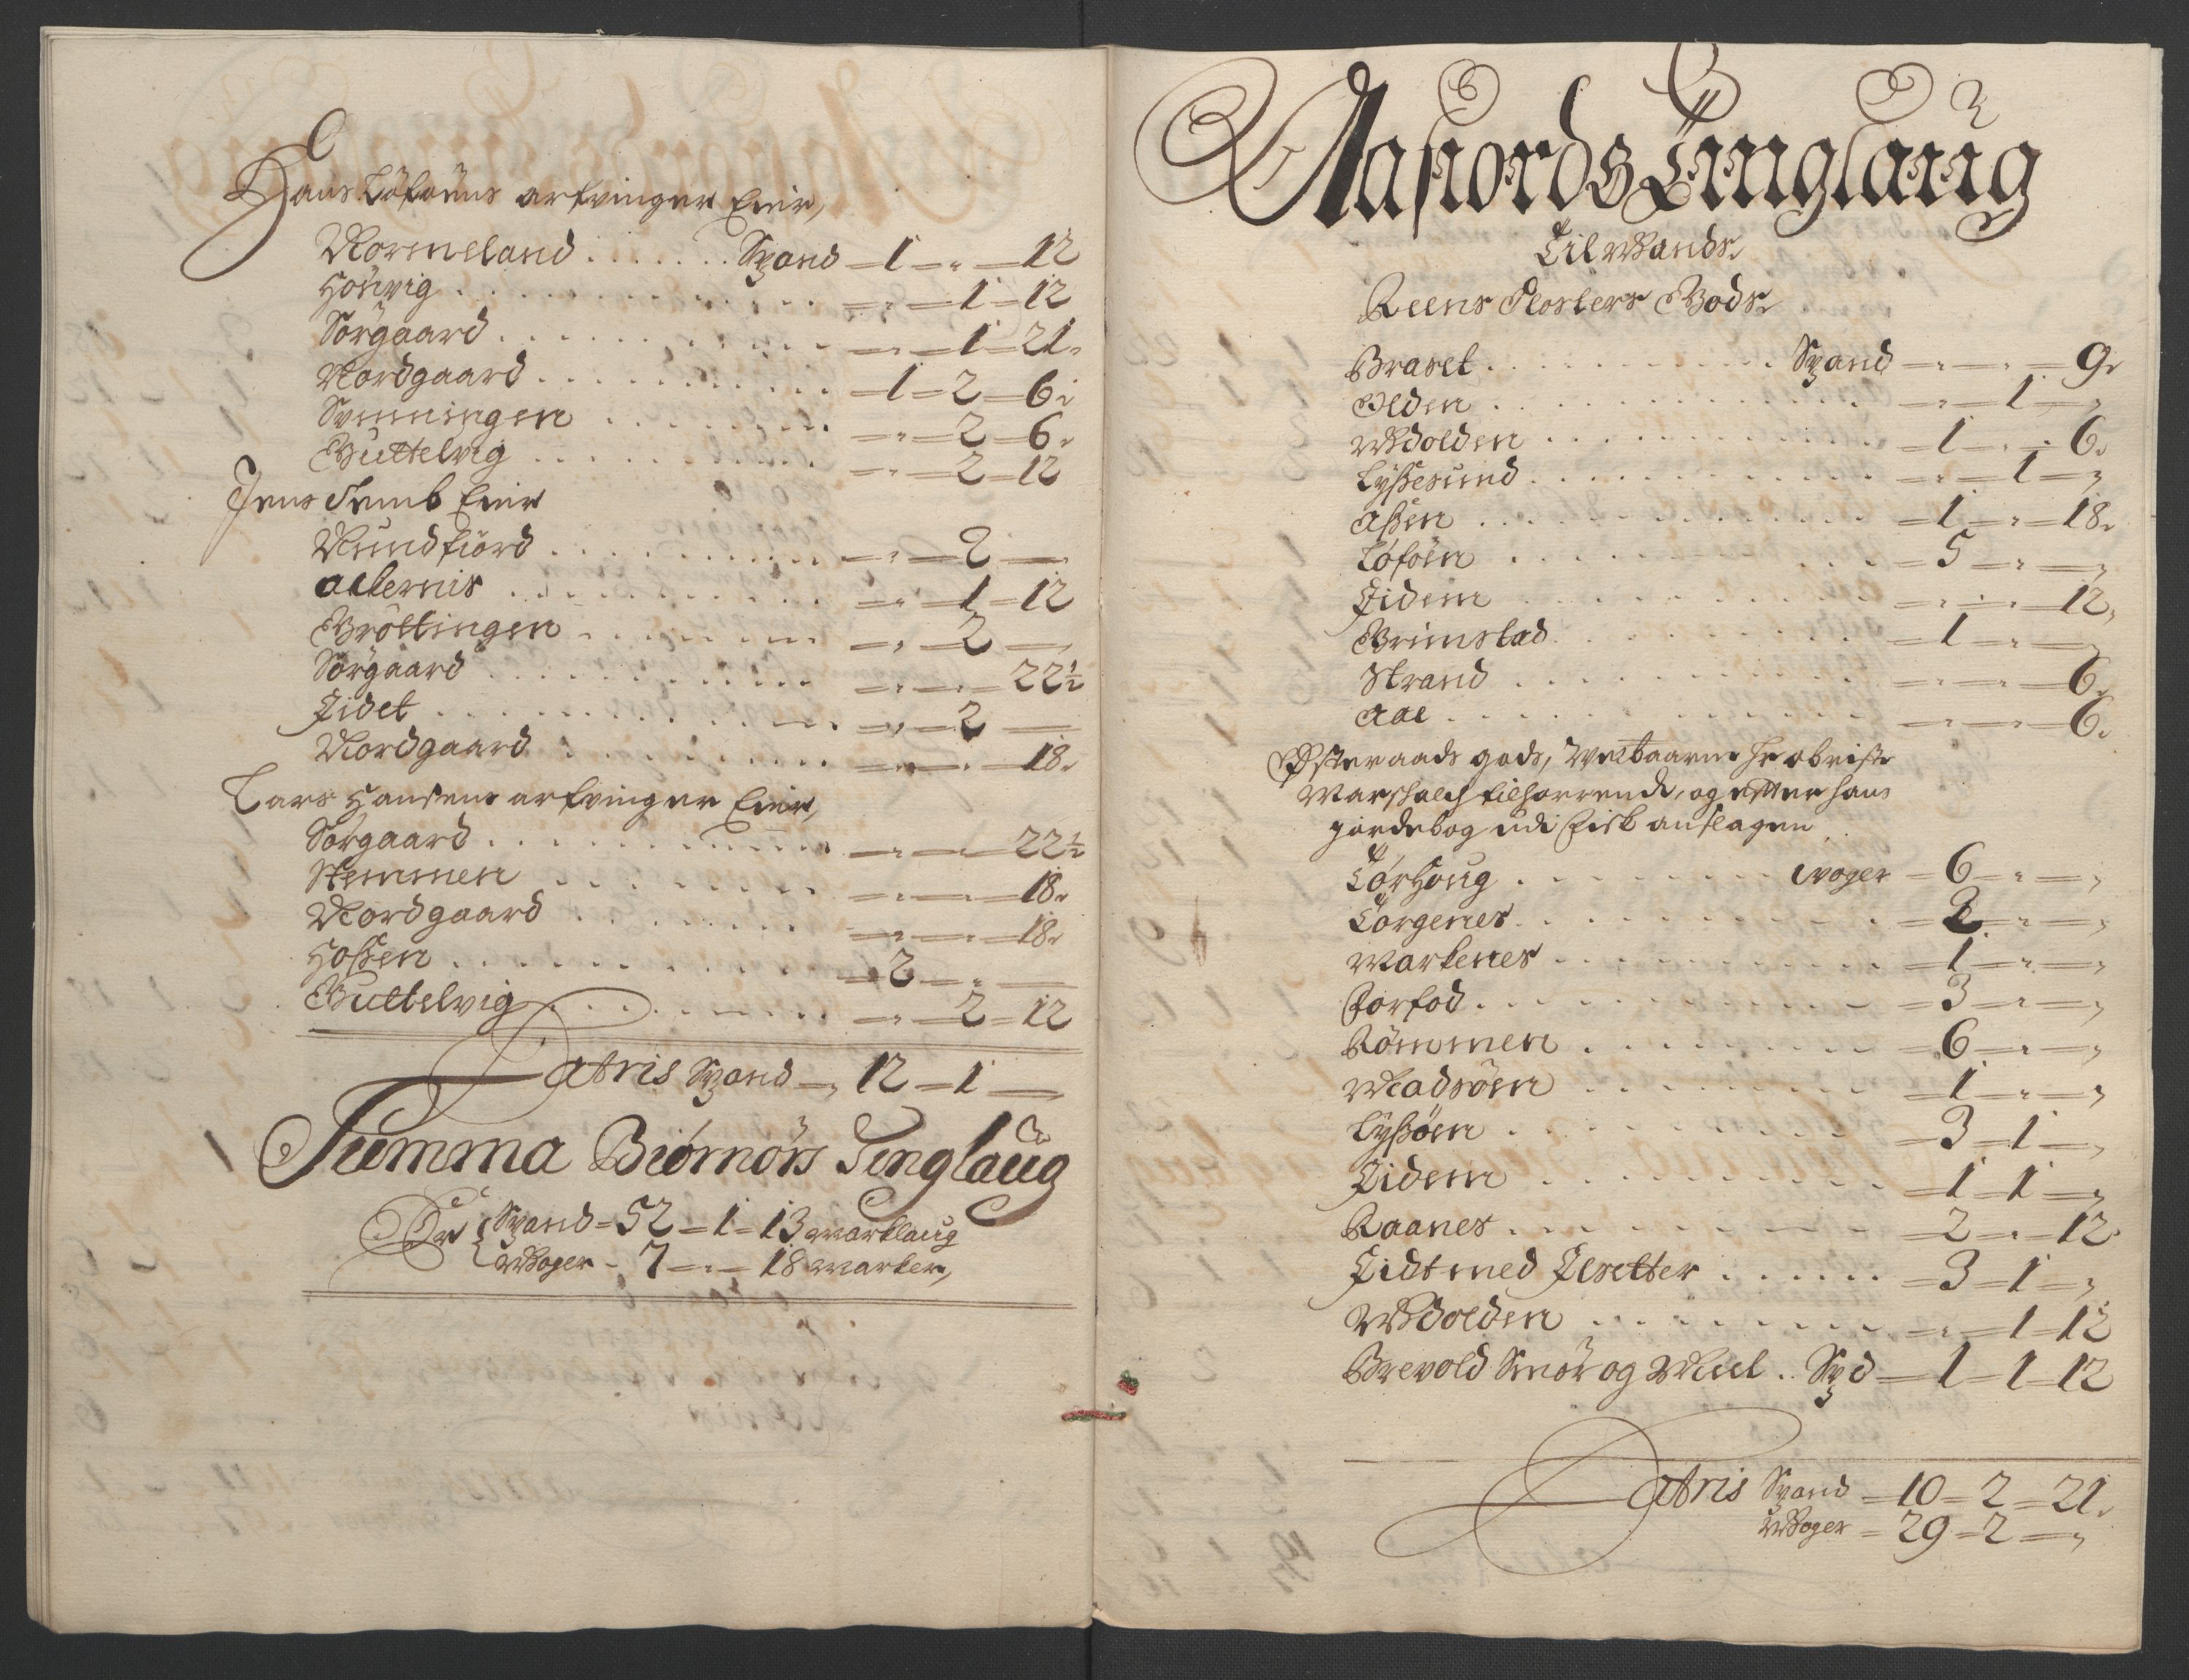 Hans Löföens arfvinger Eier,
Normeland . . . . . . Spand – 1 – „ – 12
Houvig . . . . . – „ – 1 – 12
Sörgaard . . . . . – „ – 1 – 21
Nordgaard . . . . . – 1 – 2 – 6
Svenningen . . . . . – „ – 2 – 6
Buttelvig . . . . . – „ – 2 – 12
Jens Semb Eier
Nundfiord . . . . . – „ – 2 –
Ackernis . . . . . – „ – 1 – 12
Bröttingen . . . . . – „ – 2 –
Sörgaard . . . . . – „ – „ – 22½
Eidet . . . . . – „ – 2 –
Nordgaard . . . . . – „ – „ – 18
Lars Hansens arfvinger Eier,
Sörgaard . . . . . – „ – „ – 22½
Stemmen . . . . . – „ – „ – 18
Nordgaard . . . . . – „ – „ – 18
Hoßen . . . . . – 2 – „ –
Buttelvig . . . . . – „ – 2 – 12
Latris Spand – 12 – 1 –
Summa Biörnörs Tinglaug
Er Spand – 52 – 1 – 13 marklaug
Woger – 7 – „ – 18 marker,
Aafiords Tinglaug
Til Wands
Reens Closters Gods
Braset . . . . . Spand – „ – „ – 9
Olden . . . . . – „ – 1 – „
Wdolden . . . . . – 1 – „ – 6
Lyßesund . . . . . – „ – 1 – „
Aßen . . . . . – 1 – „ – 18
Löföen . . . . . – 5 – „ – „
Eidem . . . . . – „ – „ – 12
Grimstad . . . . . – 1 – „ – „
Strand . . . . . – „ – „ – 6
Aae . . . . . – „ – „ – 6
Østeraads gods, Welbaarne Hr obriste
Marschalch tilhörrende, og efter hans
jordebog udi Fisk anslagen
Törhoug . . . . . woger – 6 – „ – „
Törgenes . . . . . – 2 – „ – „
Markenes . . . . . – 1 – „ – „
Forfod . . . . . – 3 – „ – „
Römmen . . . . . – 6 – „ – „
Madsöen . . . . . – 1 – „ – „
Lyßöen . . . . . – 3 – 1 – „
Eidem . . . . . – 1 – 1 – „
Raanes . . . . . – 2 – „ – 12
Eidt med Elsetter . . . . . – 3 – 1 – „
Wdolden . . . . . – „ – 1 – 12
Brevold Smör og Meel . . Spd – 1 – 1 – 12
Latris Spand – 10 – 2 – 21
Woger – 29 – 2 – „